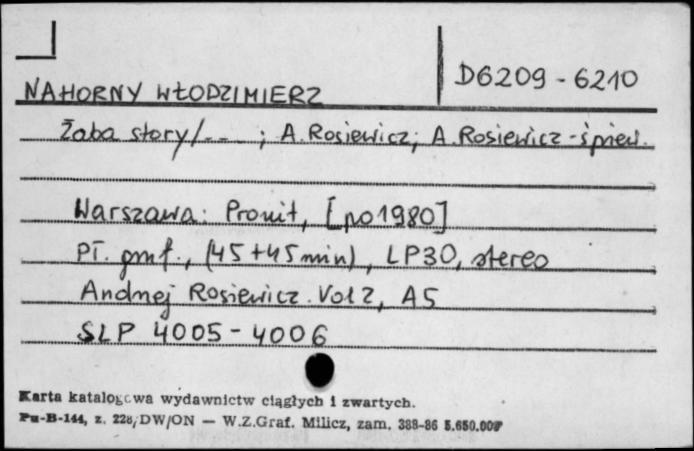 D6209 - 6210
NAHORNY WŁODZIMIERZ
Żaba story/... ; A. Rosiewicz; A. Rosiewicz - śpiew.
Warszawa: Pronit, [po 1980]
Pł. gmf., (45 + 45 min), LP30, stereo
Andrzej Rosiewicz. Vol 2, A5
SLP 4005 - 4006
Karta katalogowa wydawnictw ciągłych i zwartych.
Pu-B-144, z. 228/DW/ON — W.Z.Graf. Milicz, zam. 388-86 5.650.000